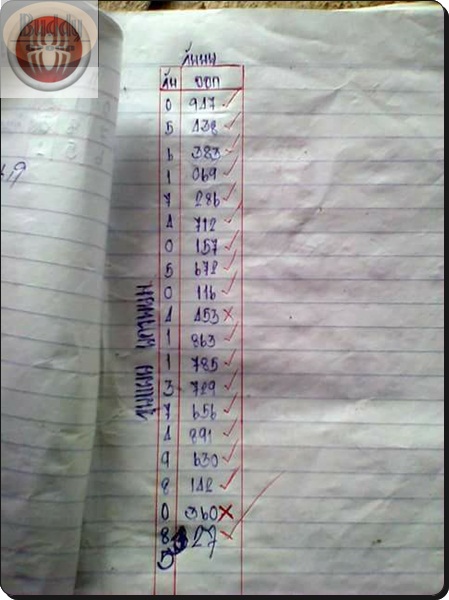 Buddy
กันบน
กัน ออก
0 947 ✓
5 438 ✓
6 383 ✓
1 069 ✓
7 286 ✓
4 712 ✓
0 157 ✓
5 672 ✓
0 116 ✓
4 453 ×
1 863 ✓
1 785 ✓
3 729 ✓
7 656 ✓
4 891 ✓
9 630 ✓
8 142 ✓
0 360 ×
8 27
5